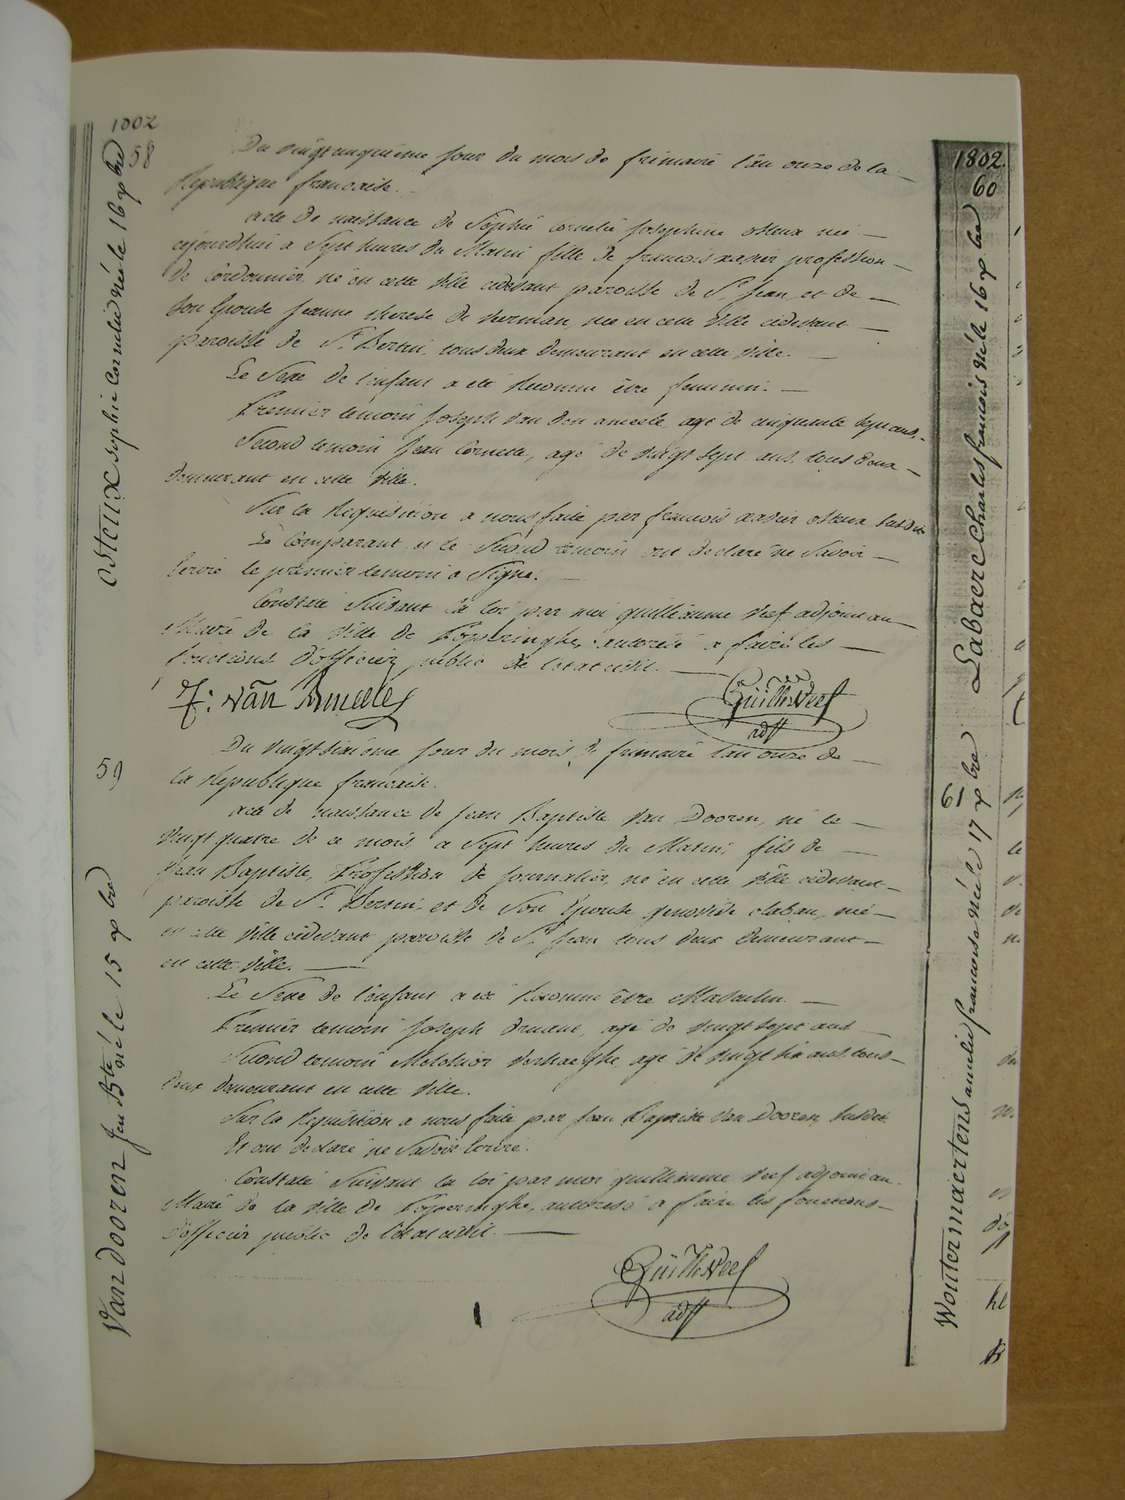 1802
58
Osteux Sophie Cornelie née le 16 xbre
Du vingt cinquième jour du mois de frimaire l'an onze de la
République française.
acte de naissance de Sophie Cornelie Josephine Osteux née
cejourdhui a Sept heures du Matin fille de francois xavier profession
de Cordonnier, né en cette Ville cidevant paroisse de St Jean, et de
Son Epouse Jeanne therese de , née en cette Ville cidevant
paroisse de St Bertin, tous deux demeurant en cette Ville.
Le Sexe de l'enfant a été Reconnu être feminin.
Premier temoin Joseph Van , agé de cinquante Sept ans.
Second temoin Jean Cornette, agé de vingt Sept ans. tous deux
demeurant en cette Ville.
Sur la Requisition a nous faite par francois xavier Osteux Susdit
Le Comparant et le Second temoin ont declaré ne Savoir
Ecrire le premier temoin a Signé.
Constaté Suivant la loi par moi guilleaume Veef adjoint au
Maire de la Ville de Poperinghe, autorisé a faire les
fonctions d'officier public de l'etat civil.
J: Van Ameele
Guill: Veef
adjt
59
Van Dooren Jean Bte né le 15 xbre
Du vingt Sixième jour du mois de frimaire l'an onze de
la République française.
acte de naissance de Jean Baptiste Van Dooren, né le
vingt quatre de ce mois, a Sept heures du Matin, fils de
Jean Baptiste, Profession de Journalier, né en cette Ville cidevant
paroisse de St Bertin et de Son Epouse genovive , née
en cette Ville cidevant paroisse de St Jean tous deux demeurant
en cette Ville.
Le Sexe de l'enfant a été Reconnu être Masculin.
Premier temoin Joseph , agé de vingt Sept ans
Second temoin Melchior Verhaeghe agé de vingt Six ans tous
deux demeurant en cette Ville.
Sur la Requisition a nous faite par Jean Baptiste Van Dooren, Susdit.
Et ont declaré ne Savoir Ecrire.
Constaté Suivant la loi par moi guilleaume Veef adjoint au
Maire de la Ville de Poperinghe, autorisé a faire les fonctions
d'officier public de l'etat civil.
Guill: Veef
adjt
1802
60
Labaere Charles francois né le 16 xbre
61
Woutermaertens amelie francoise née le 17 xbre